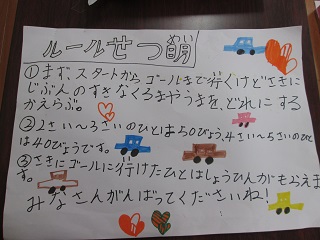 ルールせつ明
①まず、スタートからゴールまで行くけどさきに
じぶんのすきなくるまやうまを、どれにする
かえらぶ。
②2さい〜3さいのひとは50びょう、4さい〜5さいのひと
は40びょうです。
③さきにゴールに行けたひとはしょうひんがもらえま
す。
みなさんがんばってくださいね!